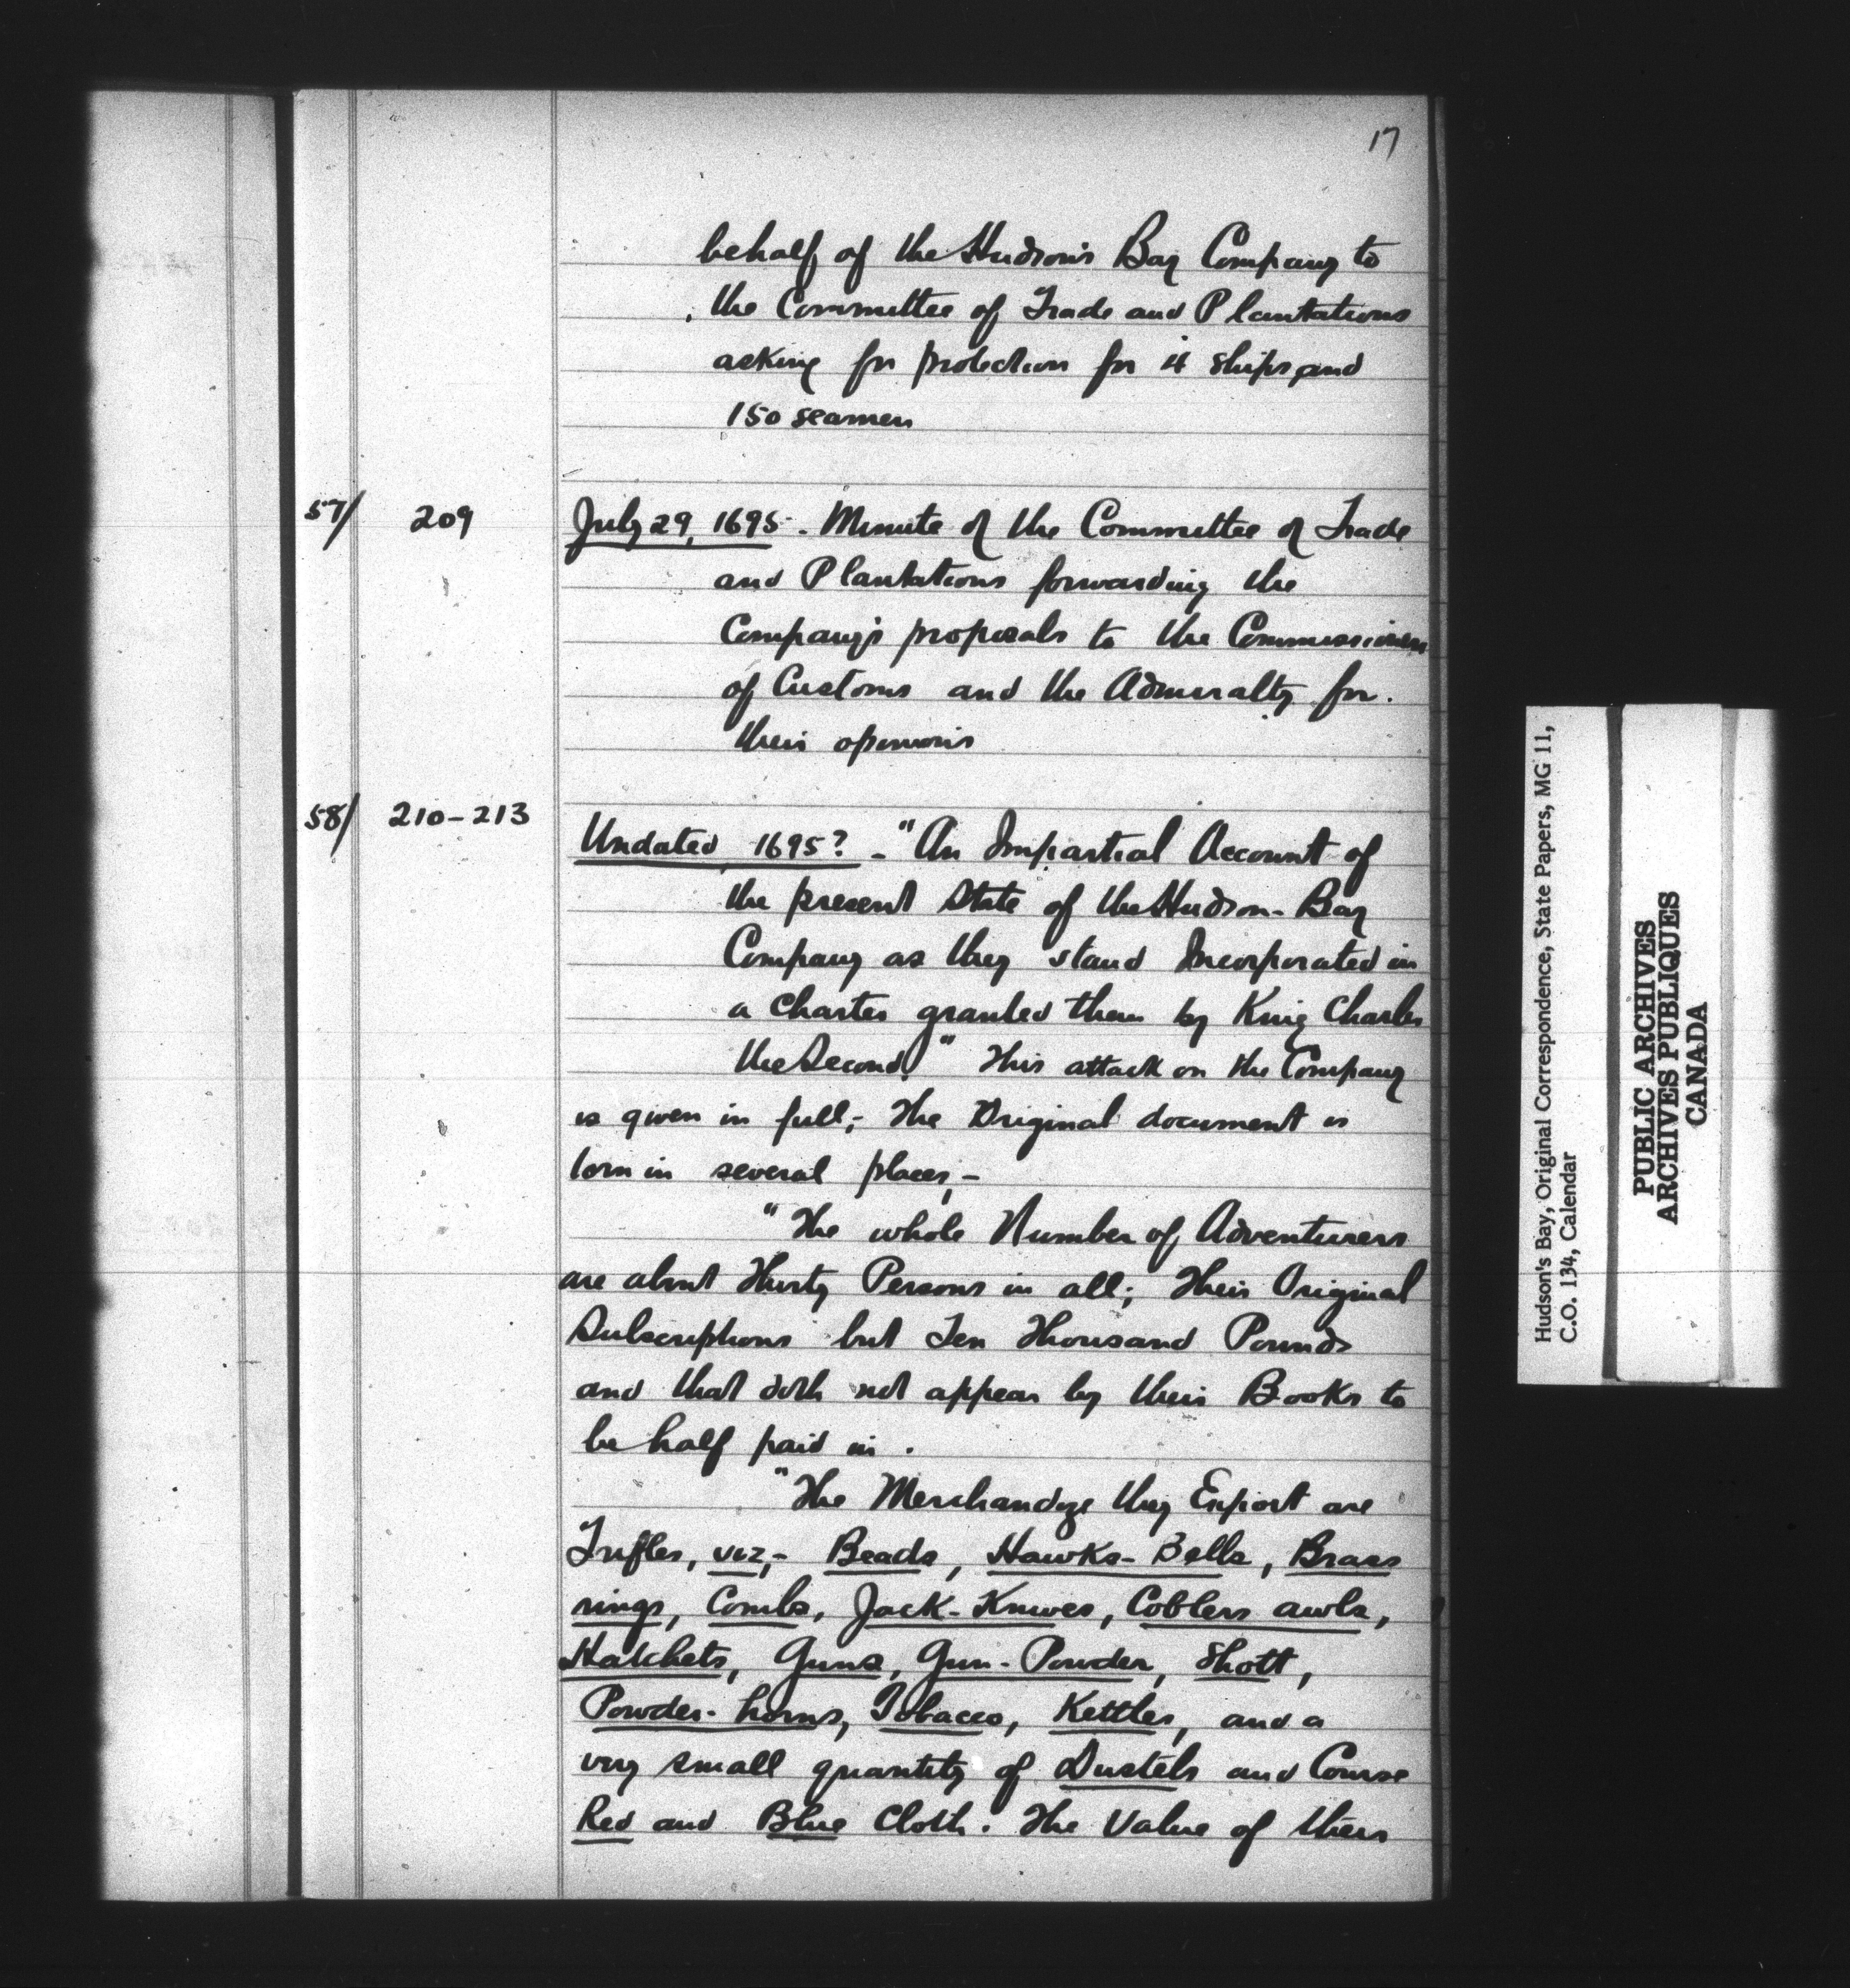 17
behalf of the Hudson's Bay Company to
the Committee of Trade and Plantations
asking for protection for 4 ships and
150 seamen
57/ 209 July 29, 1695. Minute of the Committee of Trade
and Plantations forwarding the
Company's proposals to the Commissioners
of Customs and the Admiralty for
their opinions
58/ 210-213 Undated, 1695? - "An Impartial Account of
the present State of the Hudson-Bay
Company as they stand Incorporated in
a Charter granted them by King Charles
the Second." This attack on the Company
is given in full; The Original document is
torn in several places,-
"The whole Number of Adventurers
are about Thirty Persons in all; Their Original
Subscriptions but Ten Thousand Pounds
and that doth not appear by their Books to
be half paid in.
"The Merchandize they Export are
Trifles, viz,- Beads, Hawks-Bells, Brass
rings, Combs, Jack-Knives, Coblers awls,
Hatchets, Guns, Gun-Powder, Shott,
Powder-horns, Tobacco, Kettles, and a
very small quantity of Dustels and Course
Red and Blue Cloth. The Value of their
Hudson's Bay, Original Correspondence, State Papers, MG 11,
C.O. 134, Calendar
PUBLIC ARCHIVES
ARCHIVES PUBLIQUES
CANADA